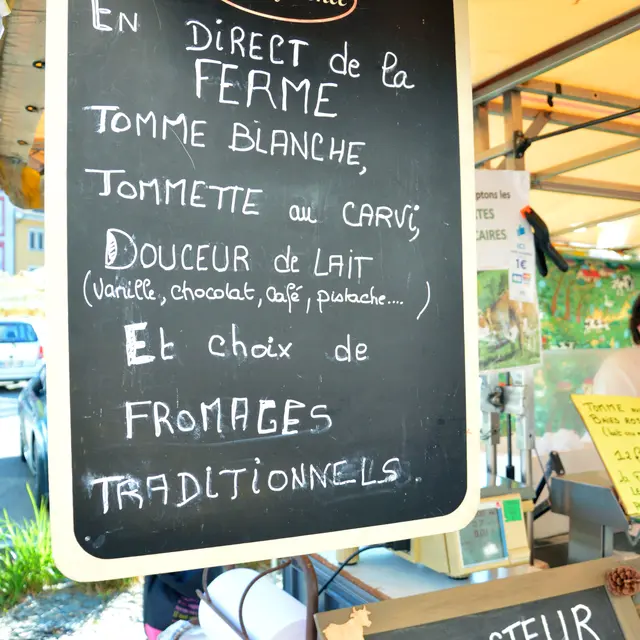 En DiRECT de la
FERME
TOMME BLANCHE,
TOMMETTE au CARVi,
DOUCEUR de LAIT
(vanille, chocolat, café, pistache.... )
Et choix de
FROMAGES
TRADITIONNELS.
ptons les
TES
CAIRES
1€
TOMME
CTEUR